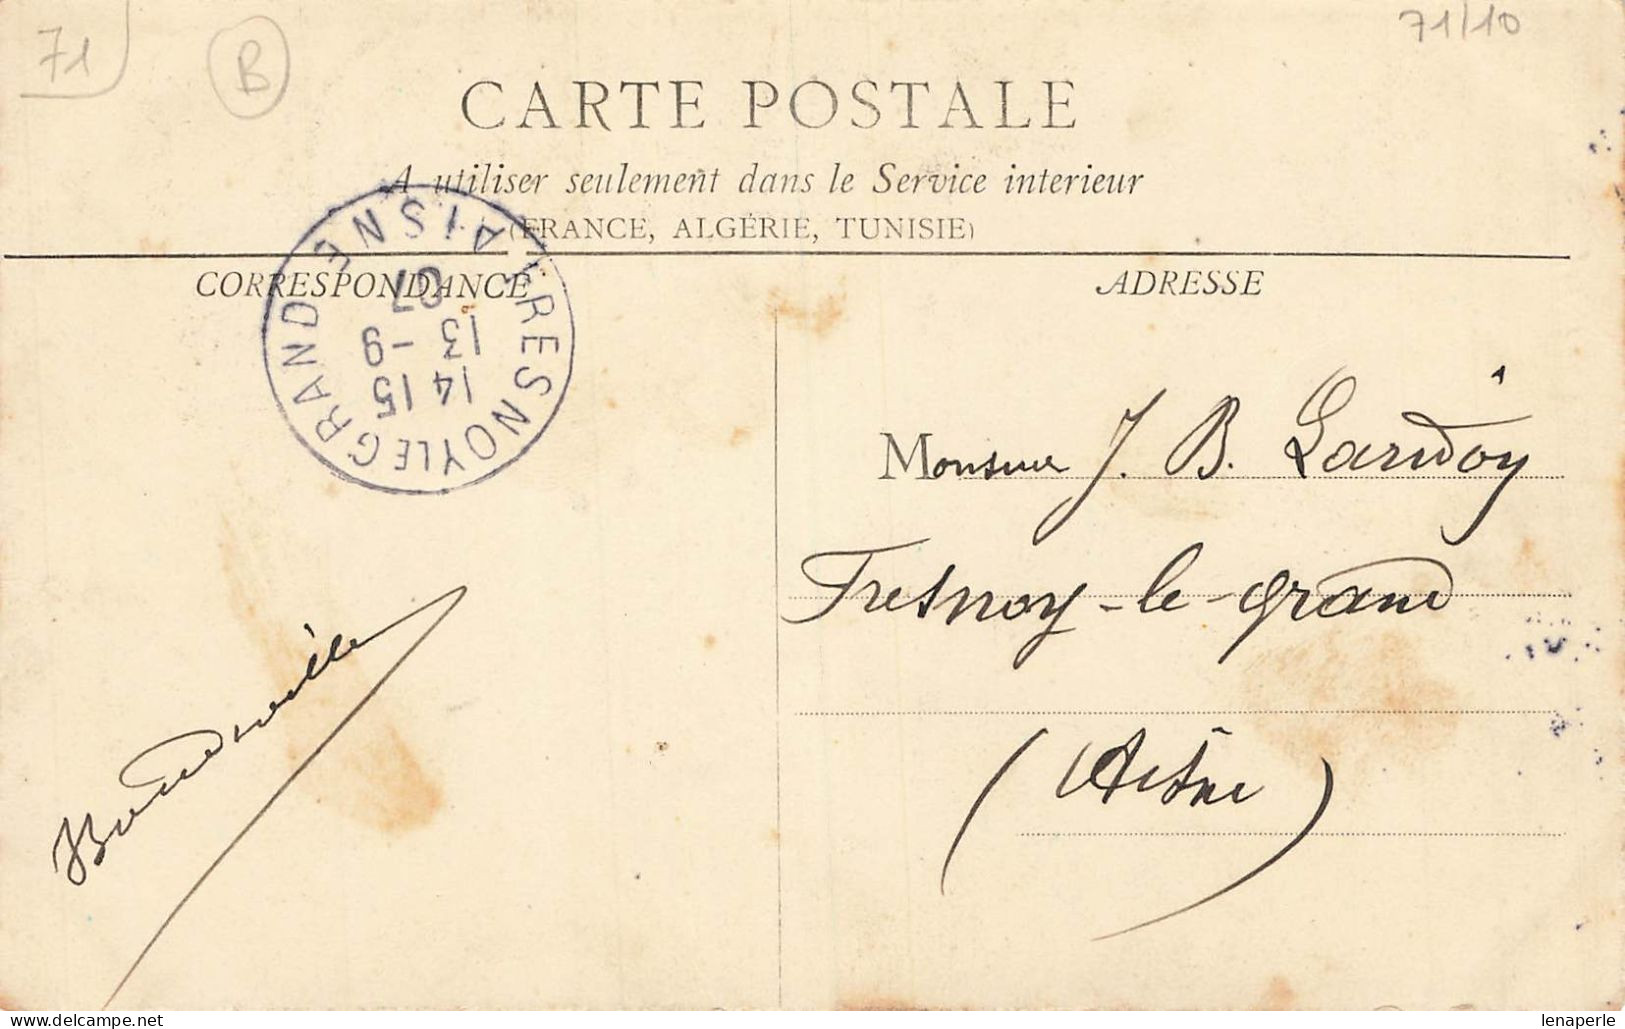 71
B
71/10
CARTE POSTALE
A utiliser seulement dans le Service interieur
(FRANCE, ALGÉRIE, TUNISIE)
CORRESPONDANCE
ADRESSE
FRESNOY LE GRAND AISNE
14 15
13 -9
07
Monsieur J. B. Lardoy
Fresnoy-le-grand
(Aisne)
lenaperle